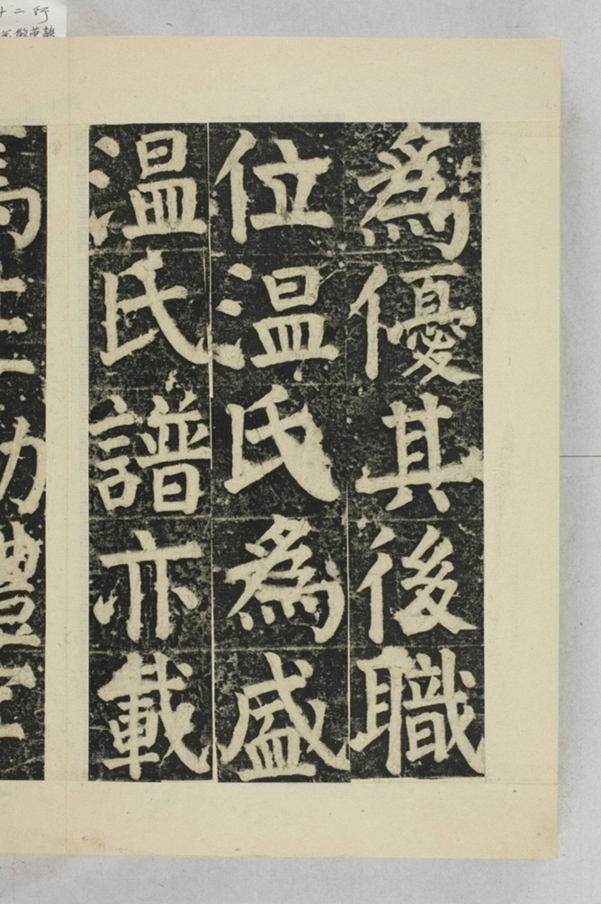 為優其後職
位温氏為盛
温氏譜亦載